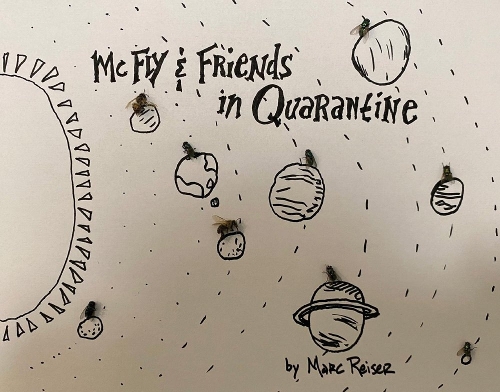 McFly & Friends
in Quarantine
by Marc Reiser